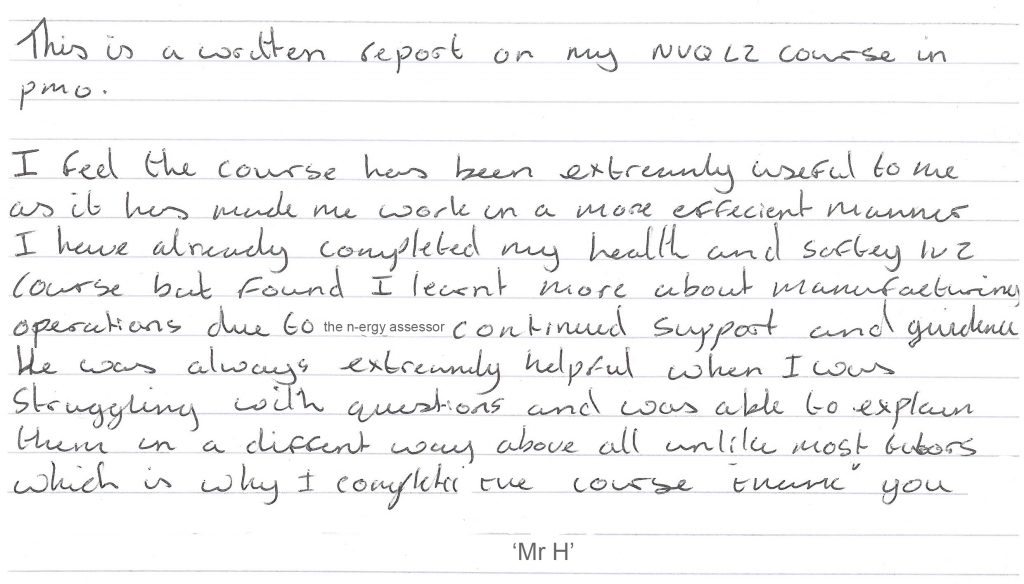 This is a written report on my NVQ L2 course in
pmo.
I feel the course has been extreamly useful to me
as it has made me work in a more effecient manner
I have already completed my health and saftey lv 2
course but found I learnt more about manufacturing
operations due to the n-ergy assessor continued support and guidence
He was always extreamly helpful when I was
struggling with questions and was able to explain
them in a diffent way above all unlike most tutors
which is why I completed the course "thank" you
'Mr H'